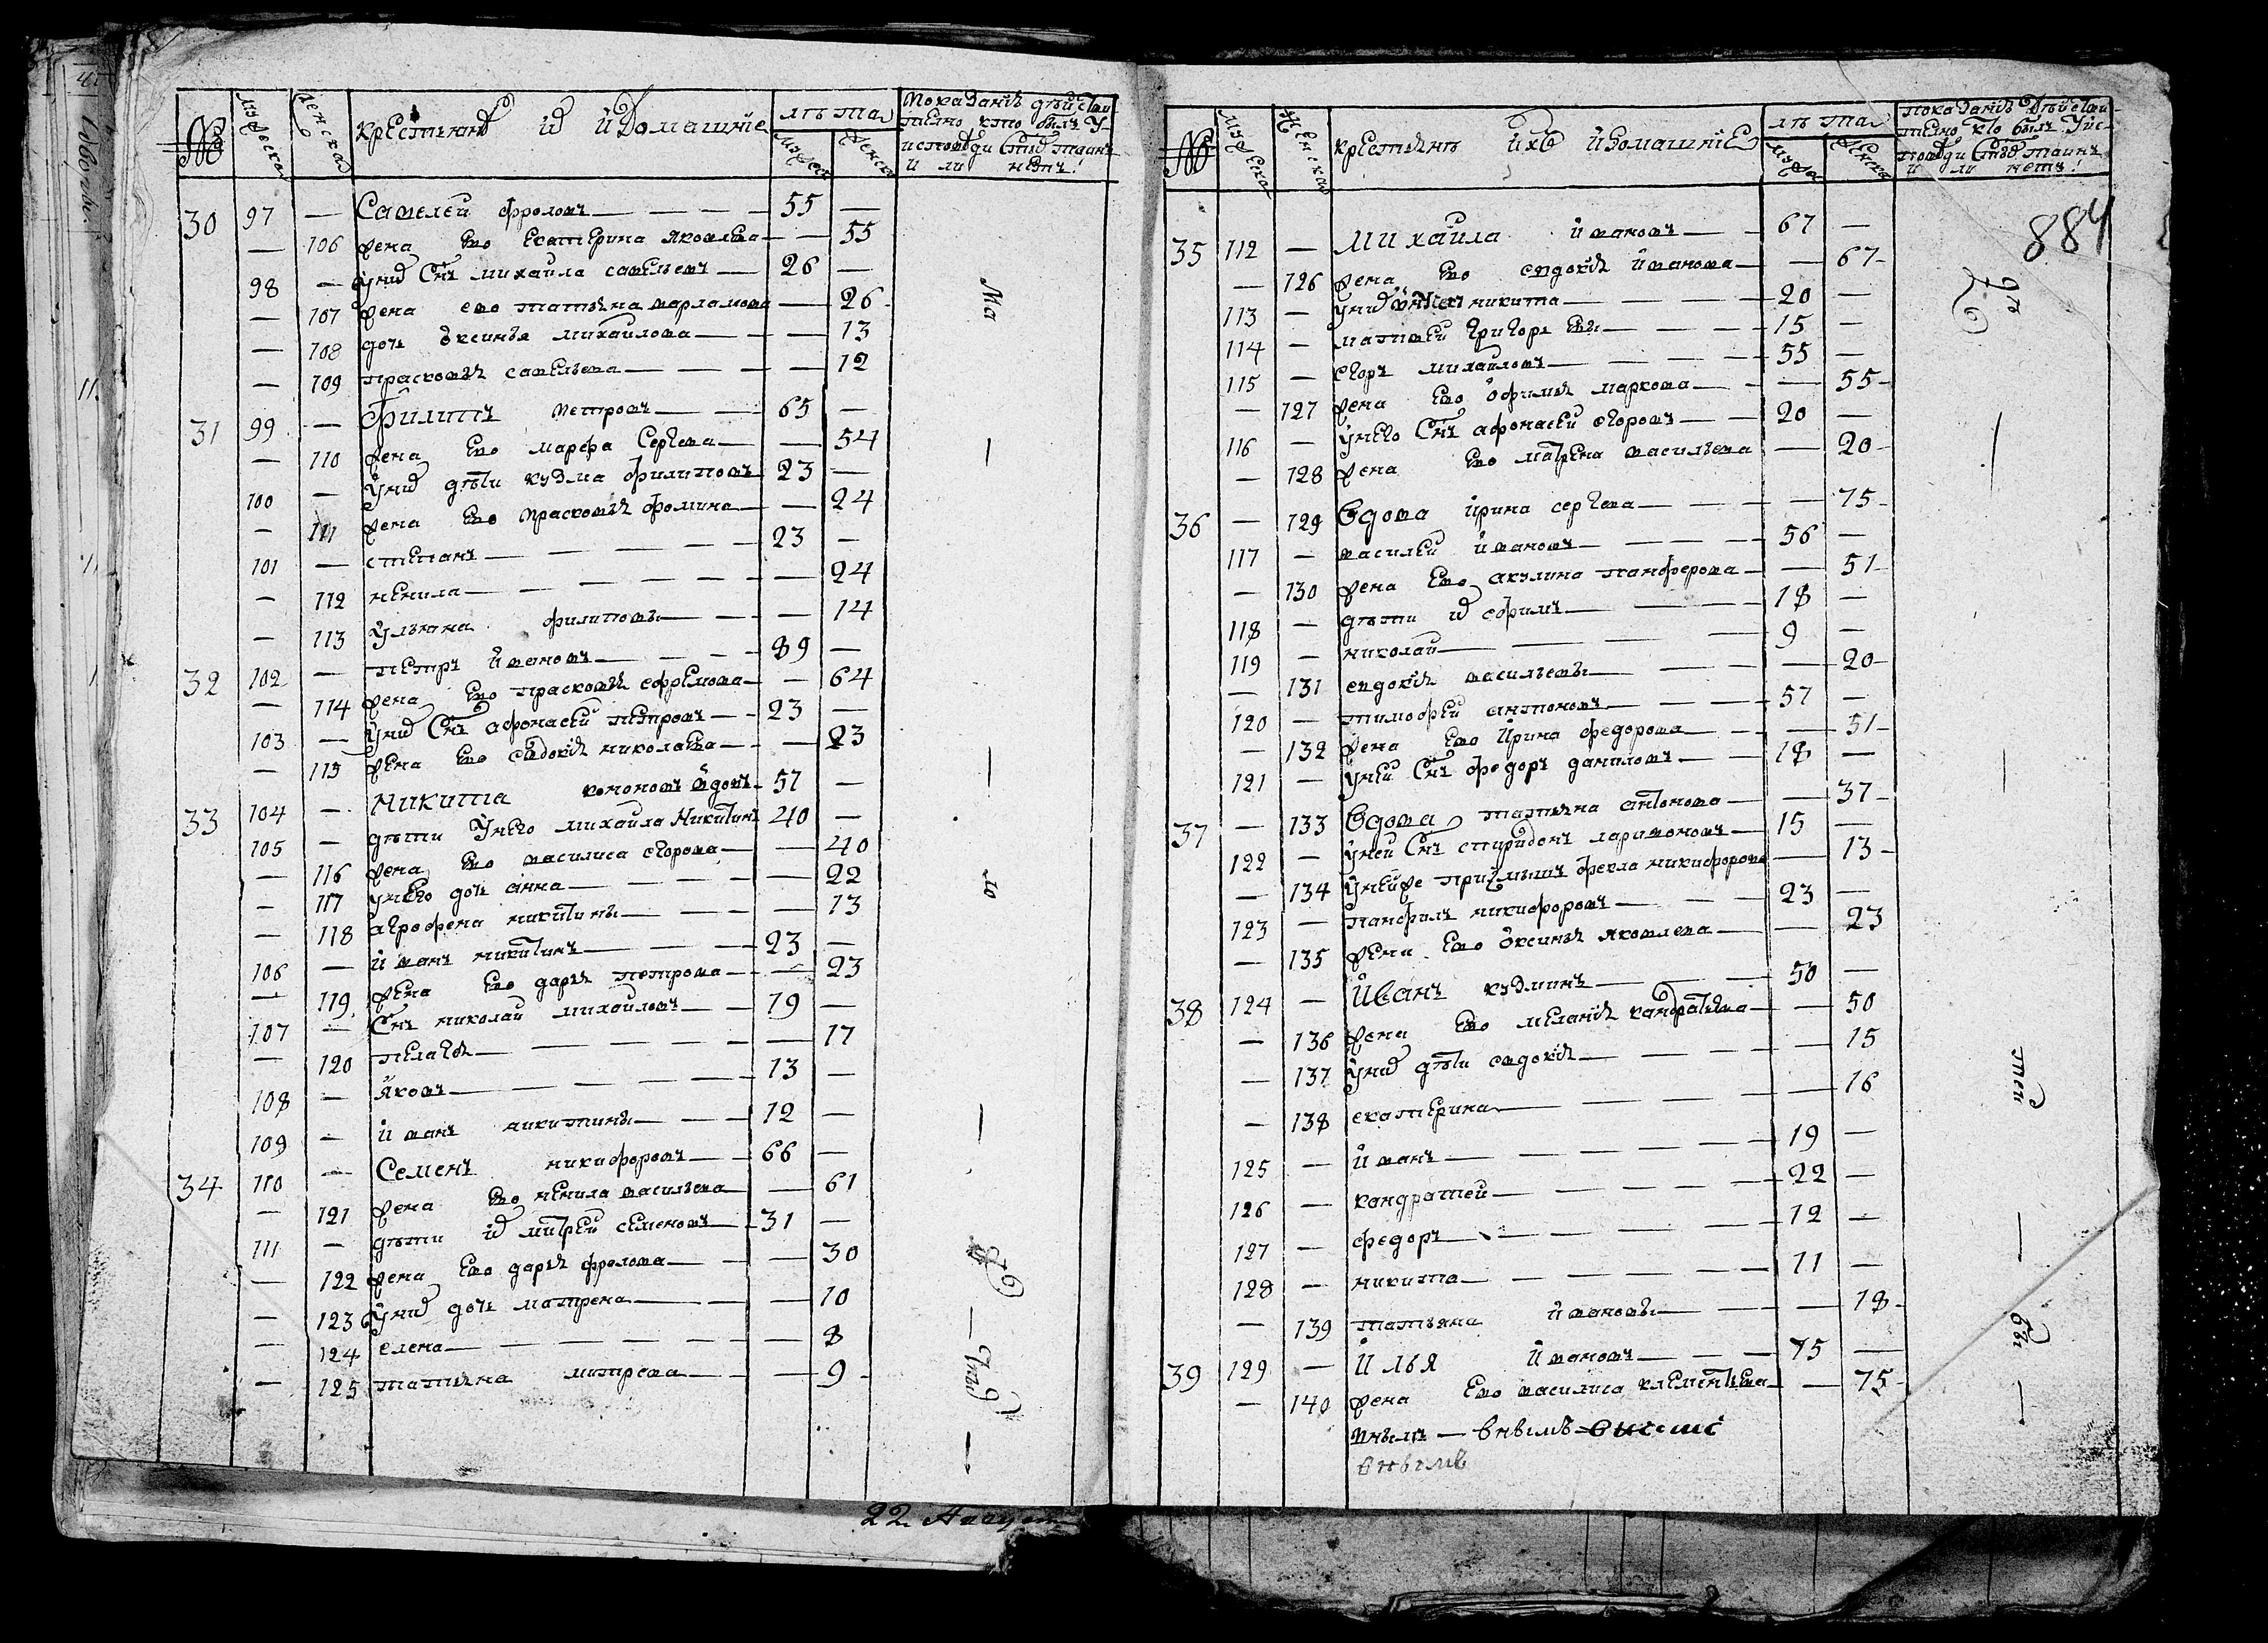 № мужеска женска крестьянъ их и домашние лѣта мужска женска показание дѣйстви-
телно кто былъ у
исповѣди и свтых таинъ
и ли нетъ!
30 97 — Савелей Фроловъ — 55 —
— 106 жена ево Екатерина Яковлева — 55
98 — у них снъ Михаила Савельевъ — 26 —
— 107 жена ево Татьяна Варламова — 26
— 108 дочь Оксинья Михайлова — 13
— 109 Прасковья Савельева — 12
31 99 — Филипъ Петровъ — 65 —
— 110 жена ево Марфа Сергева — 54
100 — у них дѣти Кузма Филиповъ 23 —
— 111 жена ево Прасковья Фомина — 24
101 — Степанъ — 23 —
— 112 Ненила — 24
— 113 Ульяна Филиповы — 14
32 102 — Петръ Ивановъ — 89 —
— 114 жена ево Прасковья Ефремова — 64
103 — у них снъ Афонасей Петровъ — 23 —
— 115 жена ево Евдокия Николаева — 23
33 104 — Никита Кононовъ вдовъ 57 —
105 — дѣти у него Михаила Никитинъ 40 —
— 116 жена ево Василиса Егорова — 40
— 117 у него дочь Анна — 22
— 118 Агрофена Никитины — 13
106 — Иванъ Никитинъ — 23 —
— 119 жена ево Дарья Петрова — 23
107 — Снъ Николай Михайловъ — 19 —
— 120 Пелагея — 17
108 — Яковъ — 13 —
109 — Иванъ Никитины — 12 —
34 110 — Семенъ Никифоровъ — 66 —
— 121 жена ево Ненила Васильева — 61
111 — дѣти их Митрей Семеновъ — 31 —
— 122 жена ево Дарья Фролова — 30
— 123 у них дочь Матрена — 10
— 124 Елена — 8
— 125 Татьяна Митрева — 9
Ма
ло
22 Августа
884
№ мужеска женска крестьянъ ихъ и домашние лѣта мужска женска показание дѣйстви-
телно кто былъ у ис-
поведи свтых таинъ
и ли нетъ!
35 112 — Михаила Ивановъ — 67 —
— 126 жена ево Евдокия Иванова — 67
113 — у них Никита — 20 —
114 — Матвей Григорьевы — 15 —
115 — Егоръ Михайловъ — 55 —
— 127 жена ево Офимья Маркова — 55
116 — у него снъ Афонасей Егоровъ — 20 —
— 128 жена ево Матрена Васильева — 20
36 — 129 Вдова Ирина Сергева — 75
117 — Василей Ивановъ — 56 —
— 130 жена ево Акулина Панферова — 51
118 — дѣти их Ефимъ — 18 —
119 — Николай — 9 —
— 131 Евдокия Васильевы — 20
120 — Тимофей Антоновъ — 57 —
— 132 жена ево Ирина Федорова — 51
121 — у ней снъ Федоръ Даниловъ — 18 —
37 — 133 Вдова Татьяна Антонова — 37
122 — у ней снъ Спиридонъ Ларивоновъ — 15 —
— 134 у ней же приемышъ Фекла Никифорова — 13
123 — Панфилъ Никифоровъ — 23 —
— 135 жена ево Оксинья Яковлева — 23
38 124 — Иванъ Кузминъ — 50 —
— 136 жена ево Мелания Кандратьева — 50
— 137 у них дѣти Евдокия — 15
— 138 Екатерина — 16
125 — Иванъ — 19 —
126 — Кандратей — 22 —
127 — Федоръ — 12 —
128 — Никита — 11 —
— 139 Татьяна Ивановы — 18
39 129 — Илья Ивановъ — 75 —
— 140 жена ево Василиса Клементьева — 75
дѣ
тей